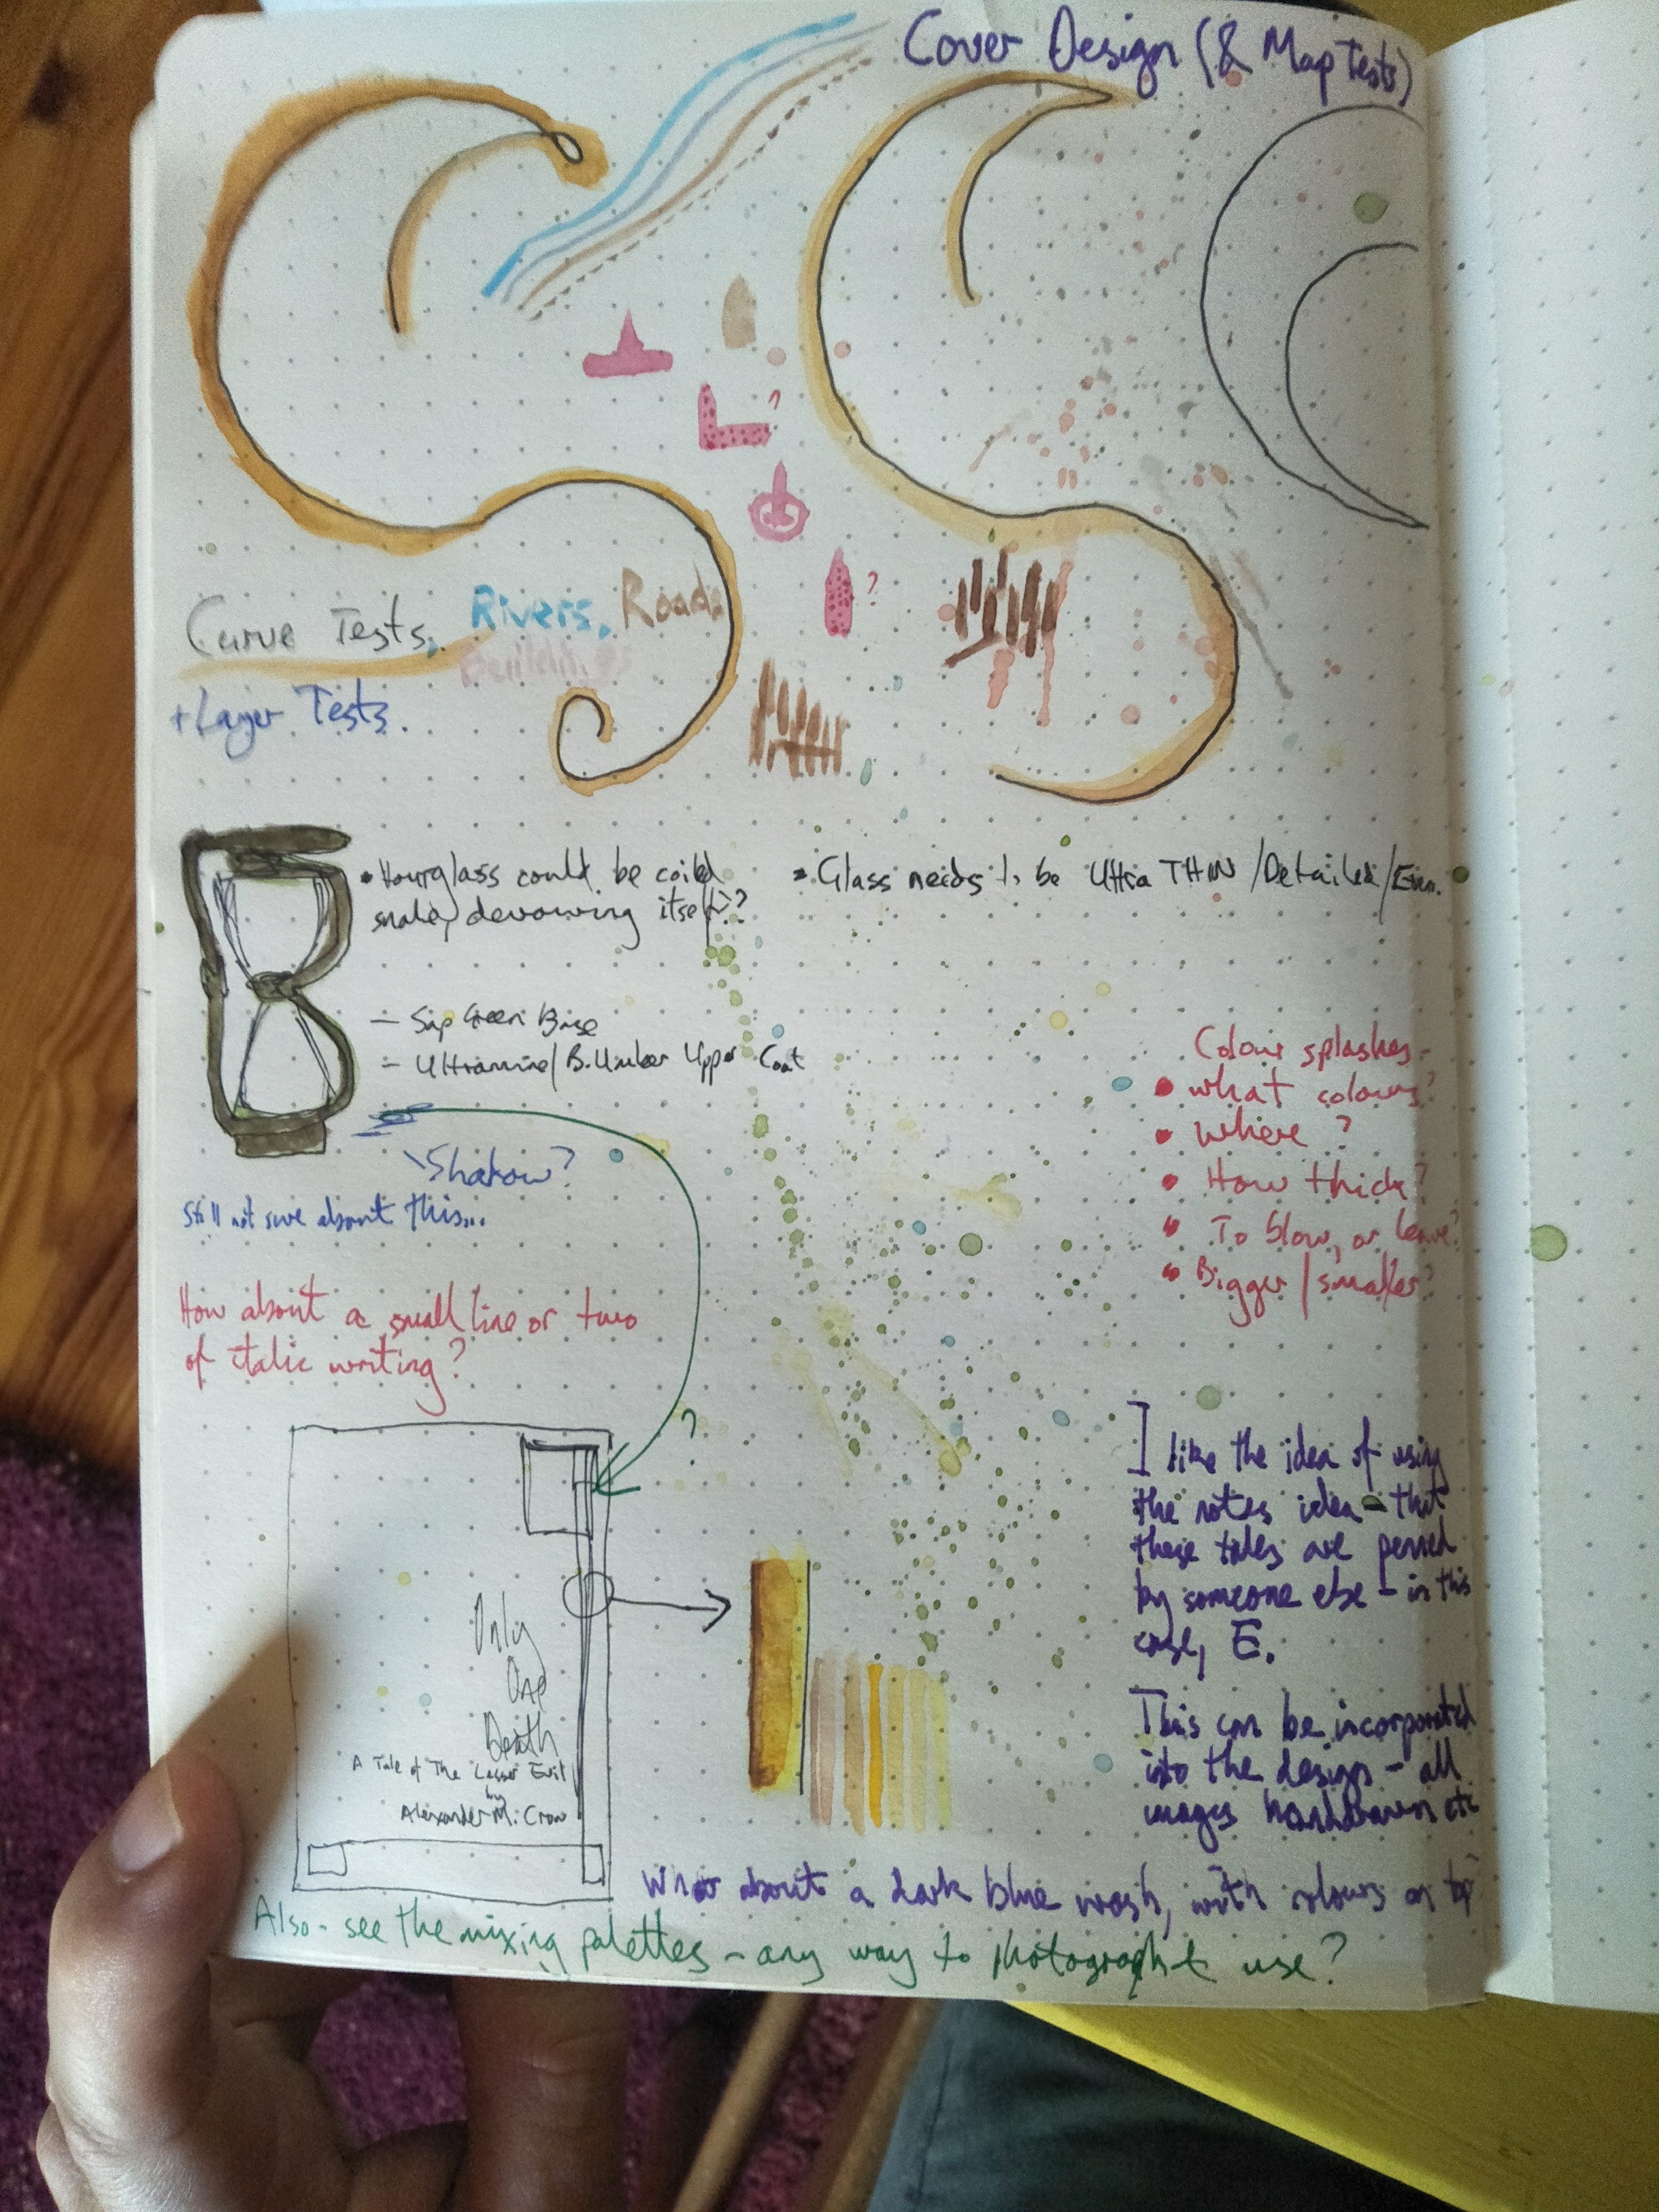 Cover Design (& Map Tests)
?
?
Curve Tests, Rivers, Roads
Buildings
+ Layer Tests.
• Hourglass could be coiled
snake, devouring itself?
• Glass needs to be Ultra THIN / Detailed / Even.
– Sap Green Base
– Ultramarine / B. Umber Upper Coat
Shadow?
Still not sure about this...
Colour splashes –
• what colours?
• where?
• How thick?
• To blow, or leave?
• Bigger / smaller?
How about a small line or two
of italic writing?
?
Only
One
Death
A Tale of The Lesser Evil
by
Alexander M. Crow
I like the idea of using
the notes idea – that
these tales are penned
by someone else – in this
case, E.
This can be incorporated
into the design – all
images handdrawn etc
What about a dark blue wash, with colours on top
Also – see the mixing palettes – any way to photograph & use?